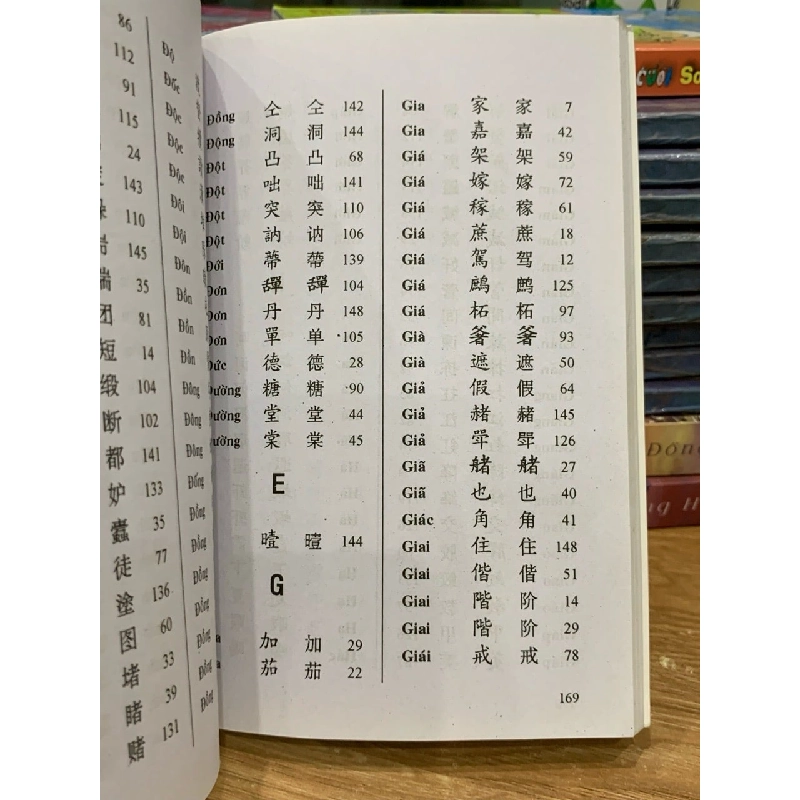 86
112
91
115
24
143
110
145
35
团 81
短 14
缎 104
断 102
都 141
妒 133
蠹 35
徒 77
塗 136
图 60
堵 33
睹 39
赌 131
Độ
Đốc
Độc
Độc
Độc
Đôi
Đội
Đôn
Đồn
Đồn
Đồn
Đông
Đông
Đông
Đồng
Đồng
Đồng
Đồng
Đồng
Đồng
Đồng
Đồng
Đồng 仝 仝 142
Động 洞 洞 144
Đột 凸 凸 68
Đột 咄 咄 141
Đột 突 突 110
Đột 訥 讷 106
Đới 蒂 蒂 139
Đơn 104
Đơn 丹 丹 148
Đơn 單 单 105
Đức 德 德 28
Đường 糖 糖 90
Đường 堂 堂 44
Đường 棠 棠 45
E
曀 曀 144
G
加 加 29
茄 茄 22
Gia 家 家 7
Gia 嘉 嘉 42
Giá 架 架 59
Giá 嫁 嫁 72
Giá 稼 稼 61
Giá 蔗 蔗 18
Giá 駕 驾 12
Giá 鷓 鹧 125
Giá 柘 柘 97
Già 93
Già 遮 遮 50
Giả 假 假 64
Giả 赭 赭 145
Giả 斝 斝 126
Giã 27
Giã 也 也 40
Giác 角 角 41
Giai 住 住 148
Giai 偕 偕 51
Giai 階 阶 14
Giai 階 阶 29
Giái 戒 戒 78
169